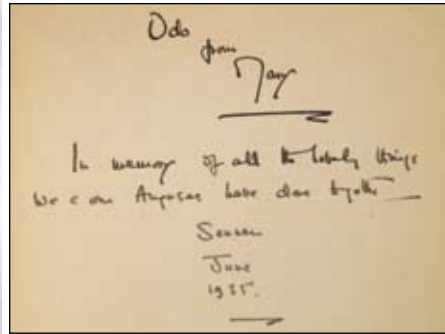 Odo
from
Mary
In memory of all the lovely things
we & our have done together
Sennen
June
1935.